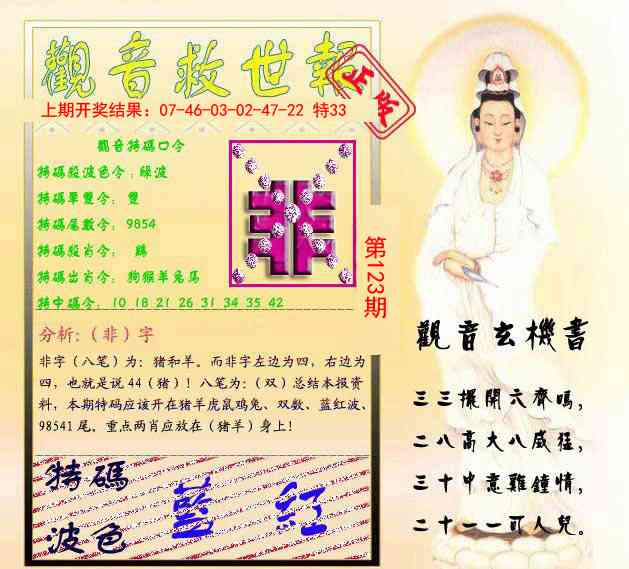 觀音救世報
正版
上期开奖结果：07-46-03-02-47-22 特33
觀音特碼口令
特碼殺波色令：綠波
特碼單雙令： 雙
特碼尾數令：9854
特碼殺肖令： 鷄
特碼出肖令： 狗猴羊兔馬
特中碼令： 10 18 21 26 31 34 35 42
非
第123期
分析:（非）字
非字（八笔）为：猪和羊。而非字左边为四，右边为
四，也就是说44（猪）！八笔为：（双）总结本报资
料，本期特码应该开在猪羊虎鼠鸡兔、双数、蓝红波、
98541尾。重点两肖应放在（猪羊）身上！
特碼
波色
藍 紅
觀音玄機書
三三擺開六齊鳴，
二八高大八威猛，
三十中意雞鐘情，
二十一一可人兒。